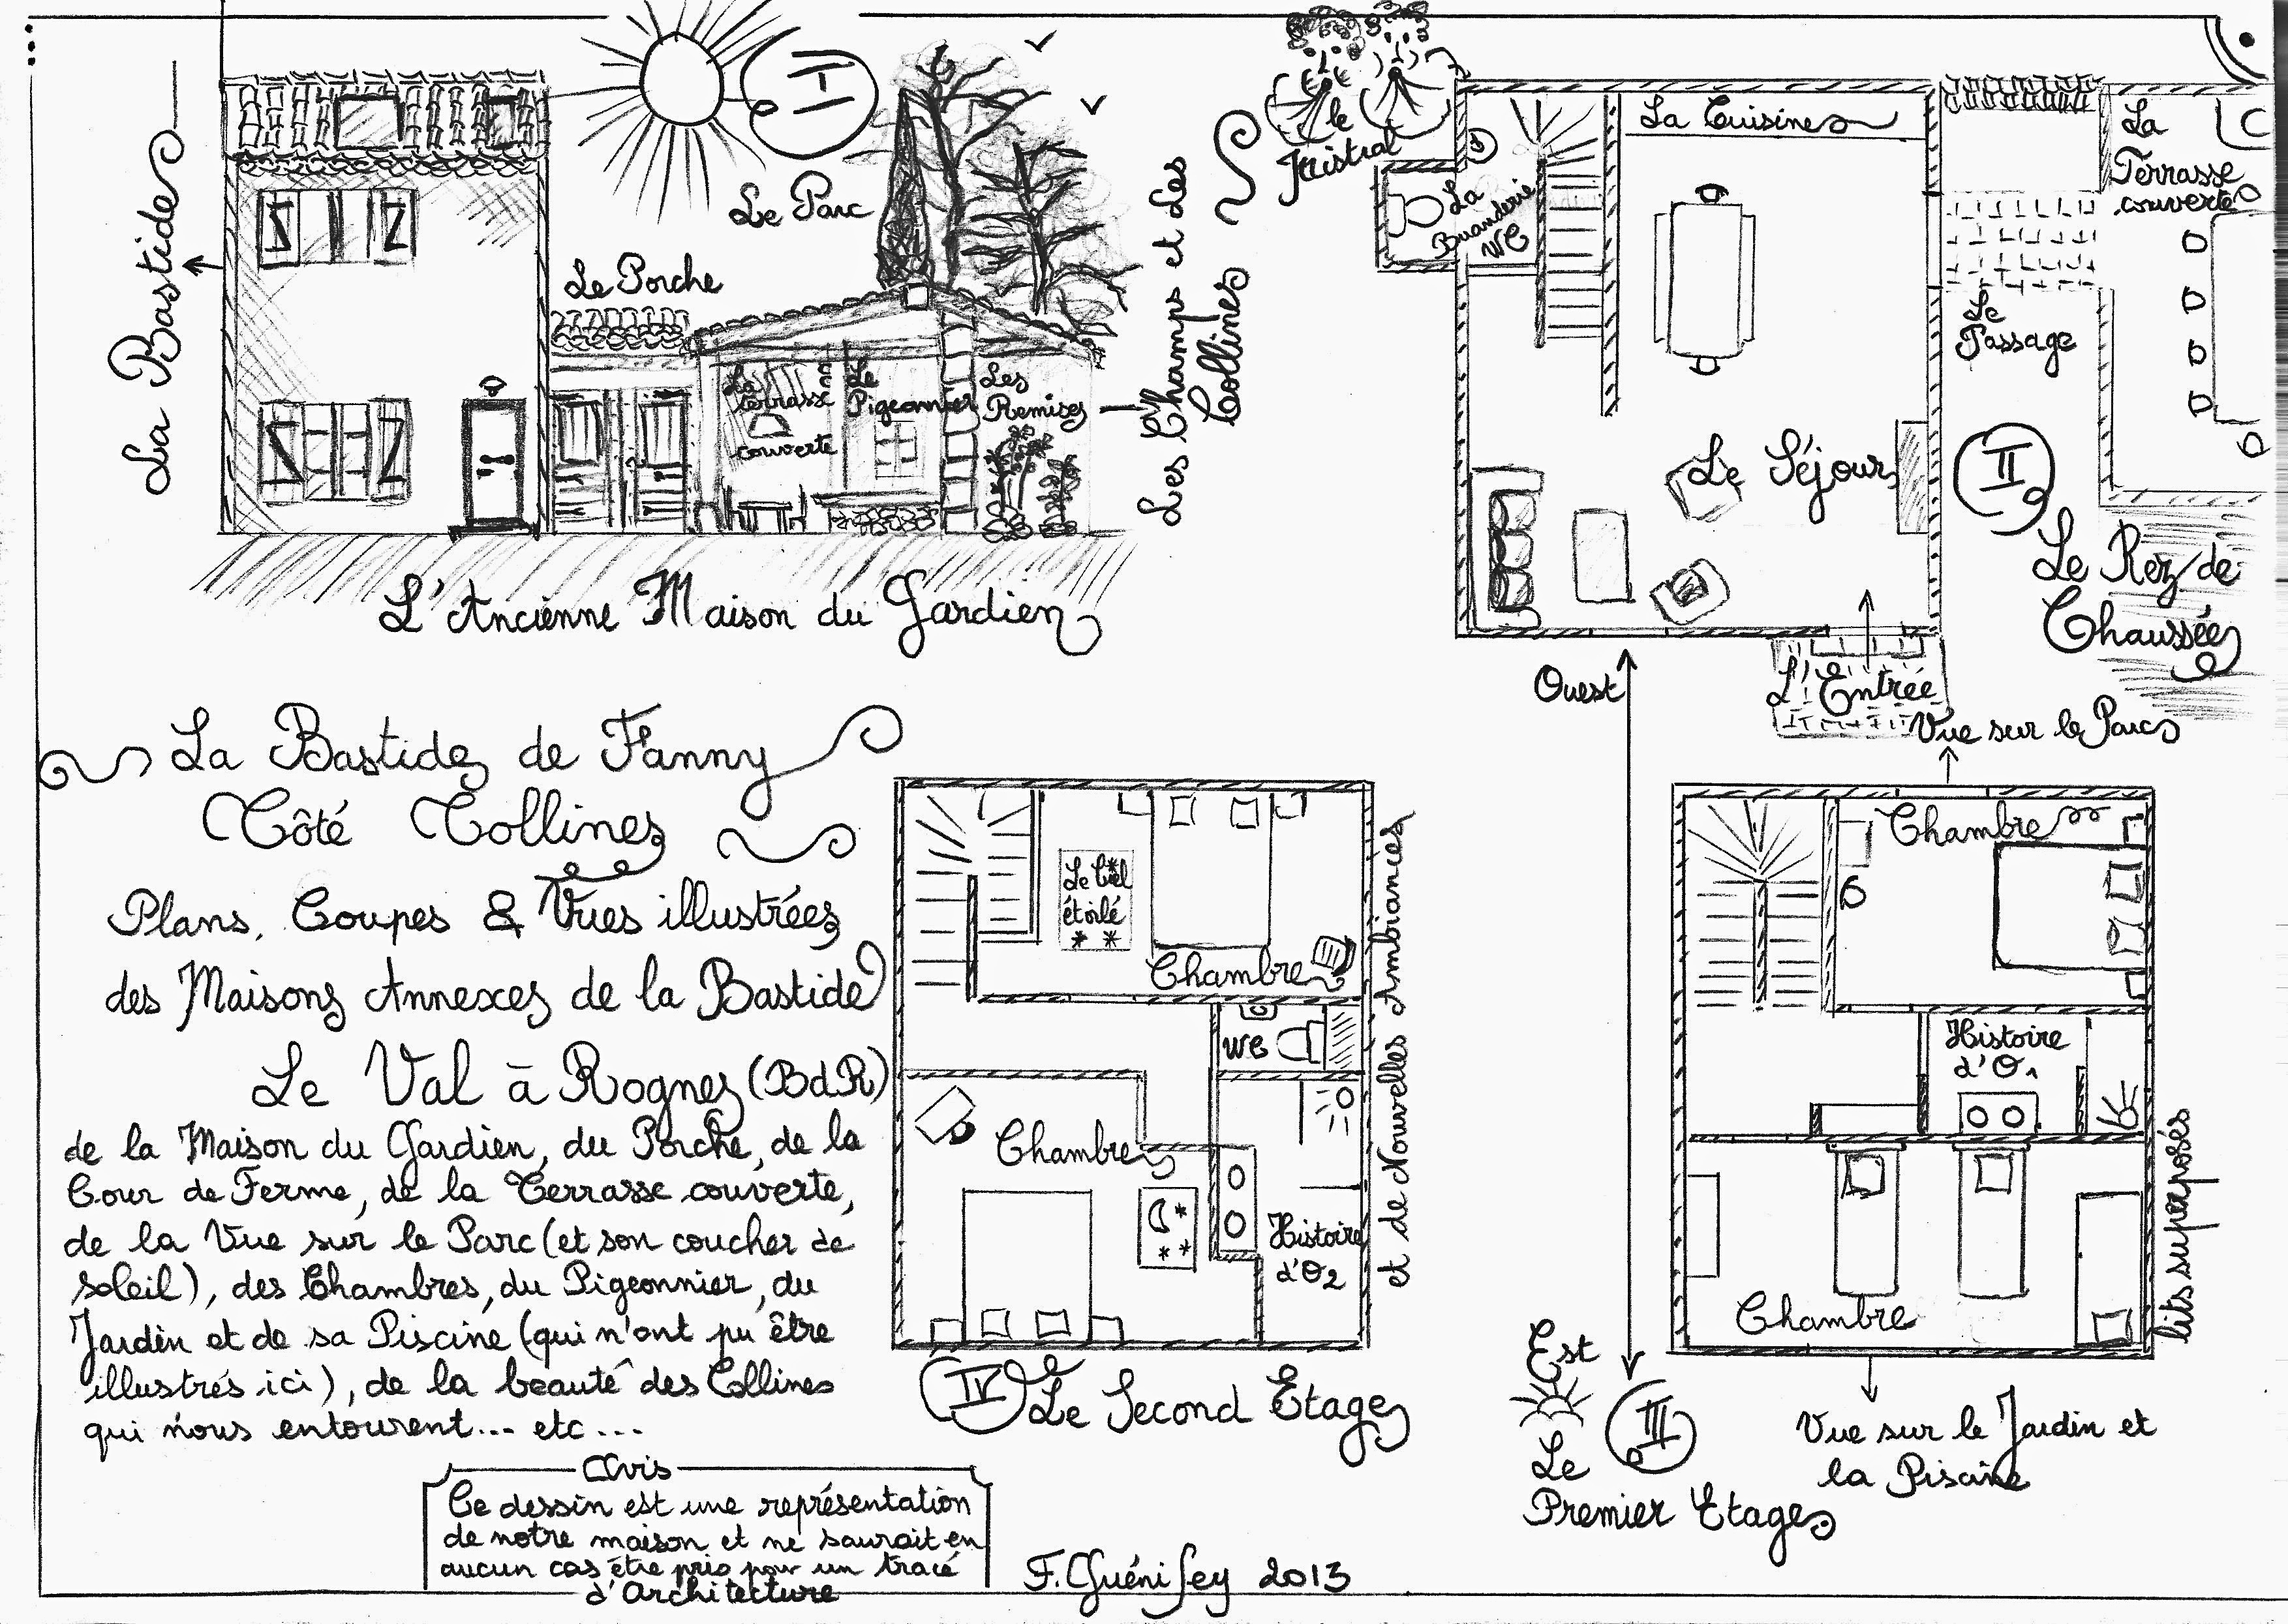 La Bastide
I
Le Parc
Le Porche
La
Terrasse
couverte
Le
Pigeonnier
Les
Remises
Les Champs et Les
Collines
L'Ancienne Maison du Gardien
le
Mistral
La Buanderie
WC
La Cuisine
Le Séjour
La
Terrasse
couverte
Le
Passage
II
Le Rez de
Chaussée
L'Entrée
Ouest
Est
La Bastide de Fanny
Côté Collines
Plans, Coupes & Vues illustrées
des Maisons Annexes de la Bastide
Le Val à Rognes (BdR)
de la Maison du Gardien, du Porche, de la
Cour de Ferme, de la Terrasse couverte,
de la Vue sur le Parc (et son coucher de
soleil), des Chambres, du Pigeonnier, du
Jardin et de sa Piscine (qui n'ont pu être
illustrés ici), de la beauté des Collines
qui nous entourent... etc...
et de Nouvelles Ambiances
Avis
Ce dessin est une représentation
de notre maison et ne saurait en
aucun cas être pris pour un tracé
d'Architecture
F. Guénifey 2013
Le Ciel
étoilé
Chambre
WC
Chambre
Histoire
d'O2
IV
Le Second Etage
Vue sur le Parc
Chambre
Histoire
d'O1
Chambre
lits superposés
III
Le
Premier Etage
Vue sur le Jardin et
la Piscine